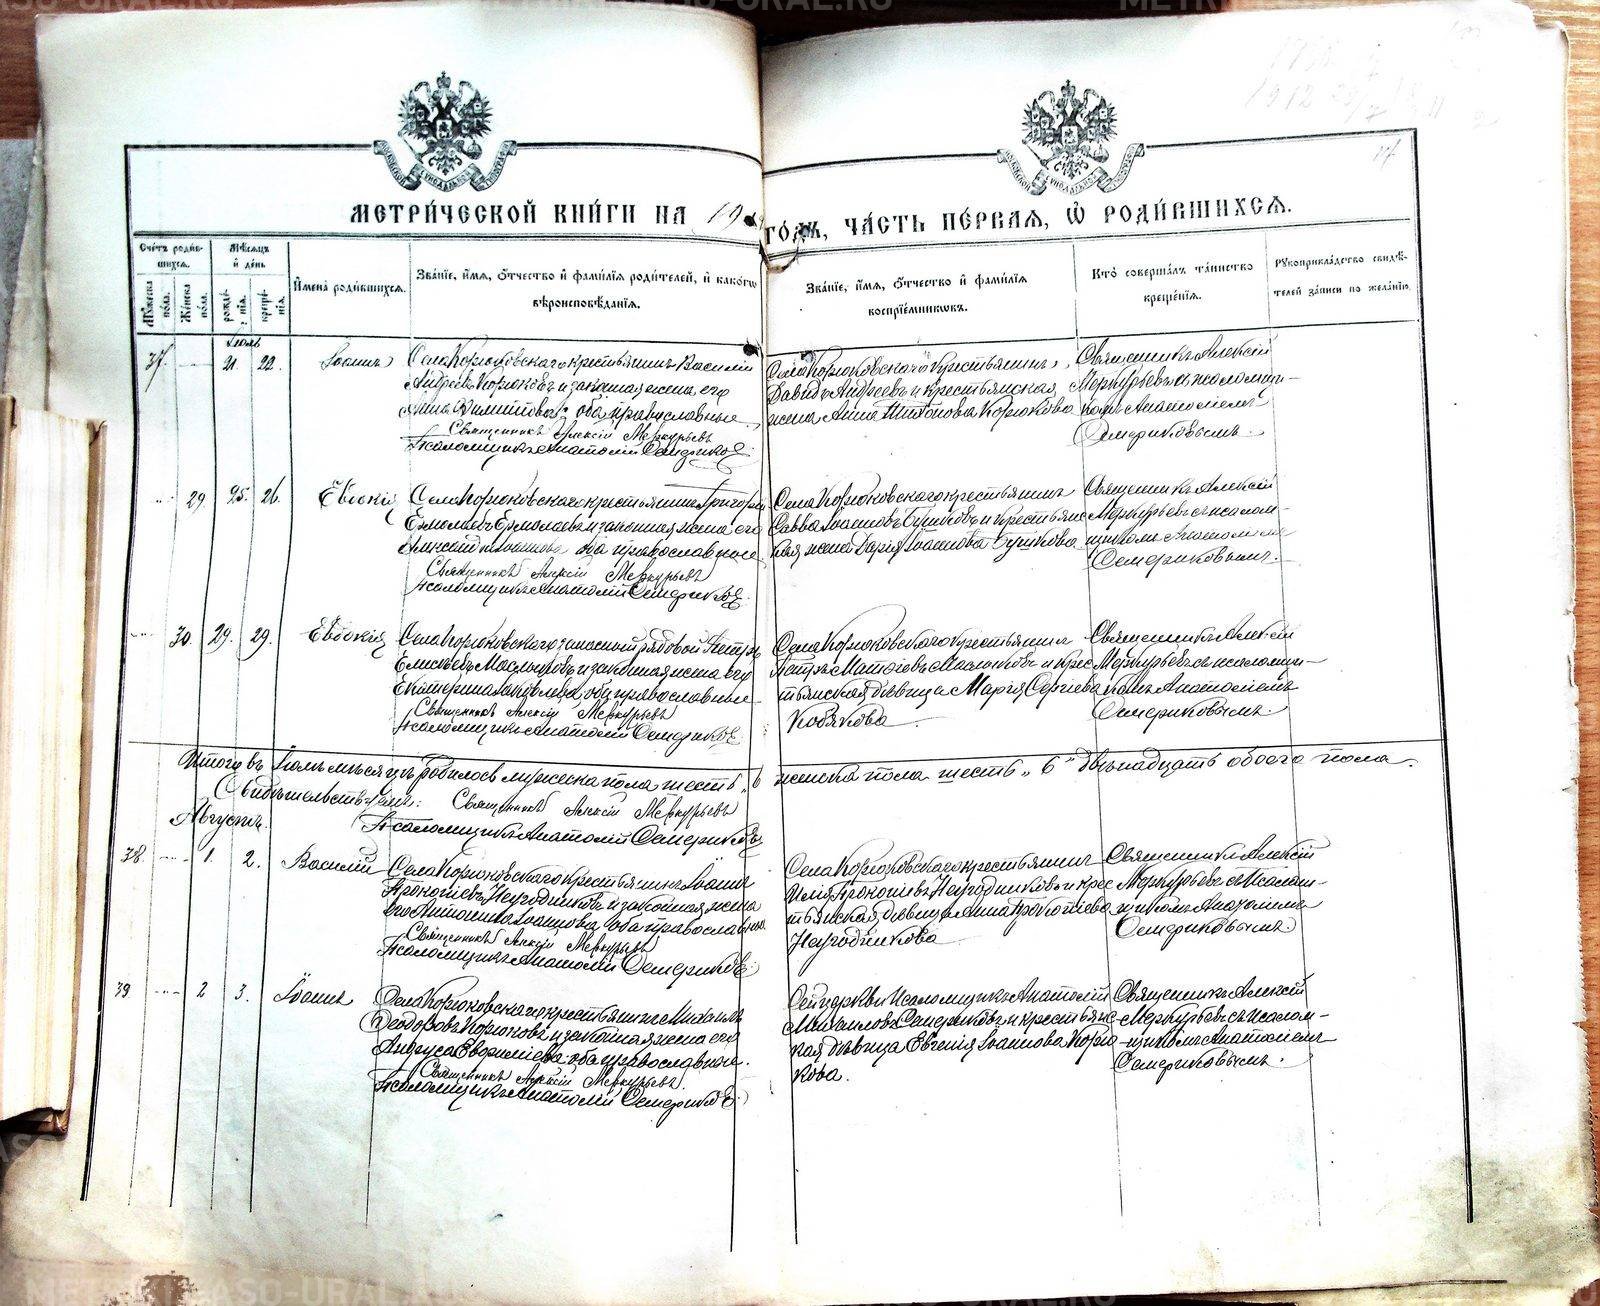 МЕТРИ́ЧЕСКОЙ КНИ́ГИ НА 19
ГО́ДЪ, ЧА́СТЬ ПЕ́РВАЯ, Ѡ РОДИ́ВШИХСЯ.
Сче́тъ роди́вшихся.
Мꙋ́жеска по́ла.
Же́нска по́ла.
Мѣ́сяцъ и де́нь
рожде́нїя.
креще́нїя.
И҆мена̀ роди́вшихся.
Зва́нїе, и҆́мя, ѻ҆́тчество и҆ фами́лїя роди́телей, и҆ како́гѡ
вѣроисповѣ́данїя.
Зва́нїе, и҆́мя, ѻ҆́тчество и҆ фами́лїя
воспрїе́мникѡвъ.
Кто̀ соверша́лъ та́инство
креще́нїя.
Рꙋкоприкла́дство свидѣ́-
телей за́писи по жела́нїю.
Іюль
37. 21. 22. Іоаннъ
Села Корюковскаго крестьянинъ Василій
Андреевъ Корюковъ и законная жена его
Анна оба православные
Священникъ Алексій Меркурьевъ
Псаломщикъ Анатолій Семериковъ
Села Корюковскаго крестьянинъ
Давидъ Андреевъ и крестьянская
жена Анна Корюкова
Священникъ Алексій
Меркурьевъ съ псаломщи-
комъ Анатоліемъ
Семериковымъ.
29. 25. 26. Евдокія
Села Корюковскаго крестьянинъ Григорій
Ермолаевъ и законная жена его
оба православные
Священникъ Алексій Меркурьевъ
Псаломщикъ Анатолій Семериковъ
Села Корюковскаго крестьянинъ
Савва Іоанновъ и крестьянс
кая жена Дарія Іоаннова
Священникъ Алексій
Меркурьевъ съ псалом-
щикомъ Анатоліемъ
Семериковымъ.
30. 29. 29. Евдокія
Села Корюковскаго запасный рядовой Петръ
Елисеевъ Масленковъ и законная жена его
Екатерина оба православные
Священникъ Алексій Меркурьевъ
Псаломщикъ Анатолій Семериковъ
Села Корюковскаго крестьянинъ
Петръ и крес
тьянская дѣвица Марія Сергіева
Кобякова
Священникъ Алексій
Меркурьевъ съ псаломщи-
комъ Анатоліемъ
Семериковымъ.
Итого въ Іюлѣ мѣсяцѣ родилось мужеска пола шесть „6 женска пола шесть „6" двѣнадцать обоего пола.
Свидѣтельствуемъ: Священникъ Алексій Меркурьевъ
Псаломщикъ Анатолій Семериковъ
Августъ.
38. 1. 2. Василій
Села Корюковскаго крестьянинъ Іоаннъ
Прокопіевъ Неугодниковъ и законная жена
его Іоаннова, оба православные
Священникъ Алексій Меркурьевъ
Псаломщикъ Анатолій Семериковъ
Села Корюковскаго крестьянинъ
Илія Прокопіевъ Неугодниковъ и крес
тьянская дѣвица Анна Прокопіева
Неугодникова
Священникъ Алексій
Меркурьевъ съ псалом-
щикомъ Анатоліемъ
Семериковымъ.
39 2 3. Іоаннъ
Села Корюковскаго крестьянинъ Михаилъ
Ѳеодоровъ Корюковъ и законная жена его
оба православные.
Священникъ Алексій Меркурьевъ.
Псаломщикъ Анатолій Семериковъ
Сей церкви псаломщикъ Анатолій
Михаиловъ Семериковъ и крестьянс
кая дѣвица Евгенія Іоаннова Корю
кова.
Священникъ Алексій
Меркурьевъ съ псалом-
щикомъ Анатоліемъ
Семериковымъ.
METRIKI.UASO-URAL.RU